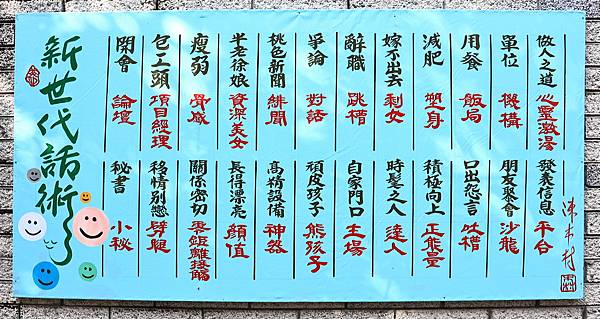 做人之道 心靈雞湯
單位 機構
用餐 飯局
減肥 塑身
嫁不出去 剩女
辭職 跳槽
爭論 對話
桃色新聞 緋聞
半老徐娘 資深美女
瘦弱 骨感
包工頭 項目經理
開會 論壇
發表信息 平台
朋友聚會 沙龍
口出怨言 吐槽
積極向上 正能量
時髦之人 達人
自家門口 主場
頑皮孩子 熊孩子
高精設備 神器
長得漂亮 顏值
關係密切 零距離接觸
移情別戀 劈腿
秘書 小秘
新世代話術
陳木村